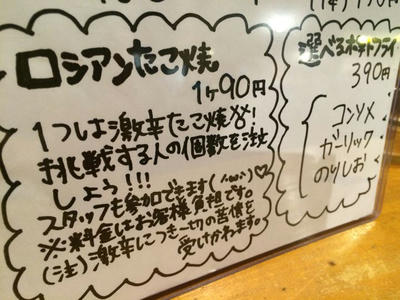 ロシアンたこ焼
1ヶ90円
1つは激辛たこ焼※!
挑戦する人の個数を注文
しよう!!!
スタッフも参加できます(^ω^)♡
※料金はお客様負担です。
(注)激辛につき一切の苦情を
受けかねます。
選べるポテトフライ
390円
コンソメ
ガーリック
のりしお